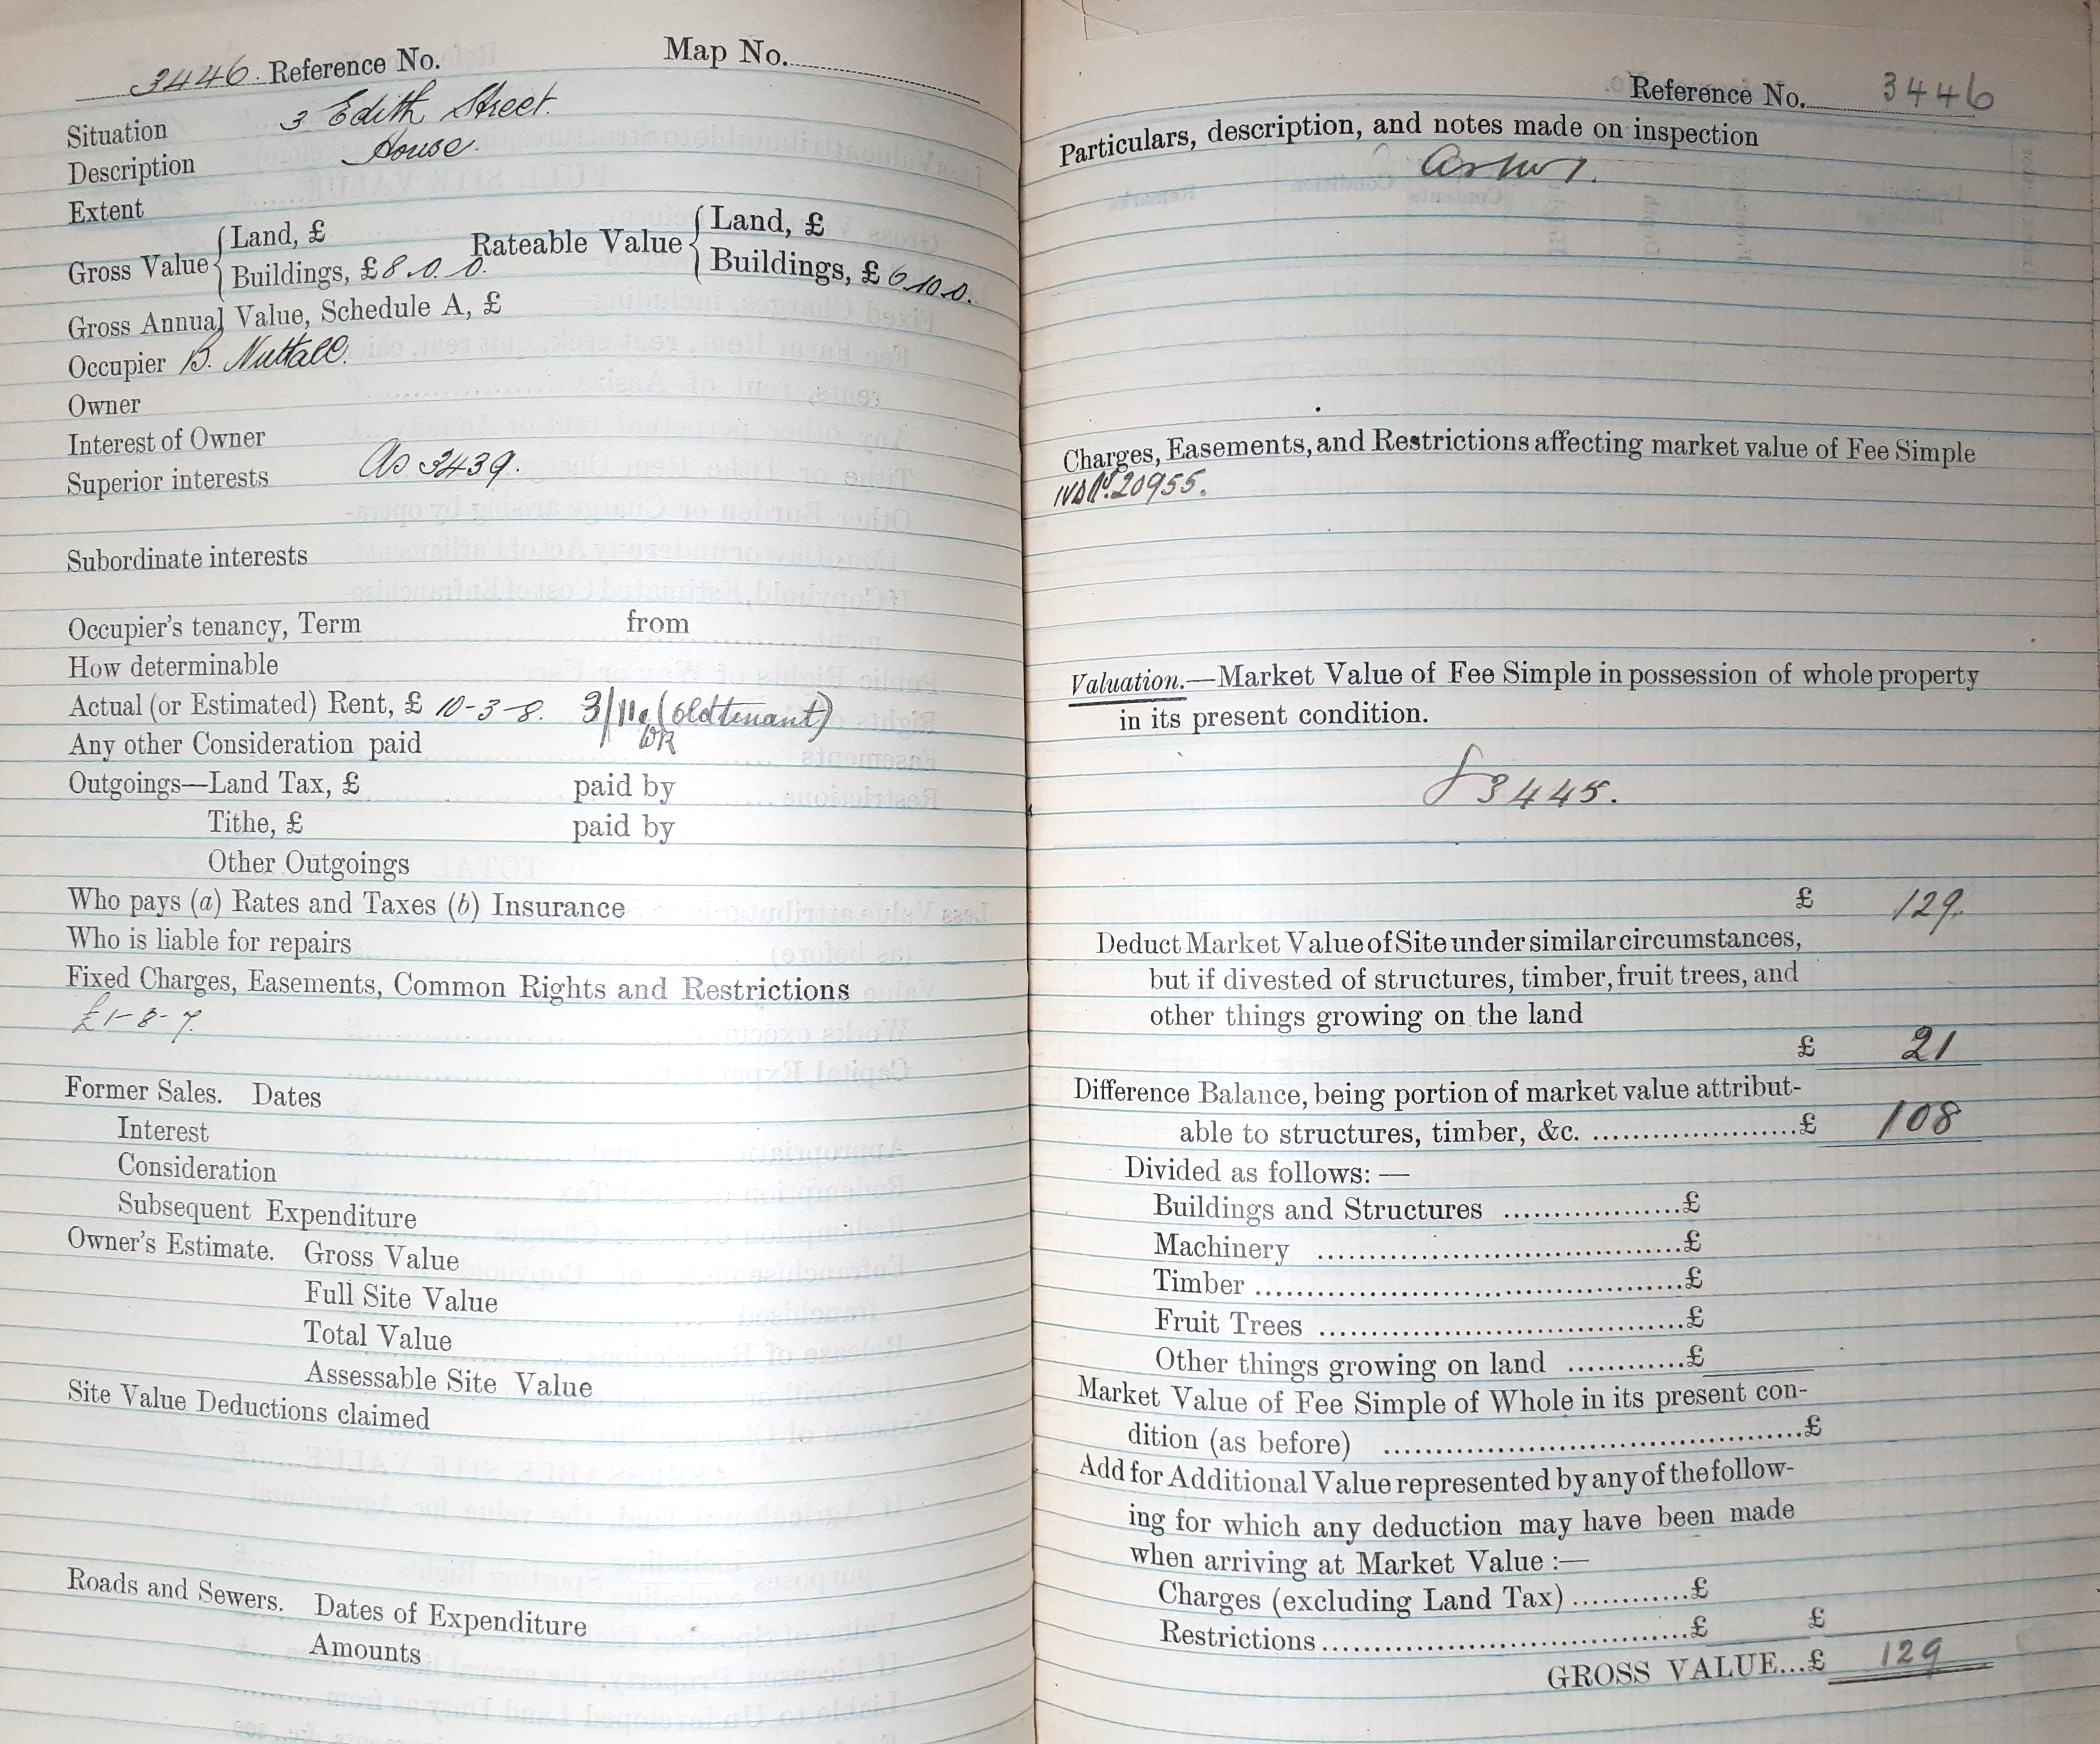 3446. Reference No. Map No.
Situation 3 Edith Street.
Description House.
Extent
Gross Value { Land, £ Rateable Value { Land, £
Buildings, £ 8. 0. 0. Buildings, £ 6.10.0.
Gross Annual Value, Schedule A, £
Occupier B. Nuttall.
Owner
Interest of Owner
Superior interests As 3439.
Subordinate interests
Occupier's tenancy, Term from
How determinable
Actual (or Estimated) Rent, £ 10-3-8. 3/11 (old tenant)
WR
Any other Consideration paid
Outgoings—Land Tax, £ paid by
Tithe, £ paid by
Other Outgoings
Who pays (a) Rates and Taxes (b) Insurance
Who is liable for repairs
Fixed Charges, Easements, Common Rights and Restrictions
£1-8-7.
Former Sales. Dates
Interest
Consideration
Subsequent Expenditure
Owner's Estimate. Gross Value
Full Site Value
Total Value
Assessable Site Value
Site Value Deductions claimed
Roads and Sewers. Dates of Expenditure
Amounts
Reference No. 3446
Particulars, description, and notes made on inspection
As No 1.
Charges, Easements, and Restrictions affecting market value of Fee Simple
20955.
Valuation.—Market Value of Fee Simple in possession of whole property
in its present condition.
3445.
£ 129.
Deduct Market Value of Site under similar circumstances,
but if divested of structures, timber, fruit trees, and
other things growing on the land
£ 21
Difference Balance, being portion of market value attribut-
able to structures, timber, &c. ..................... £ 108
Divided as follows: —
Buildings and Structures .................. £
Machinery ..................................... £
Timber ........................................... £
Fruit Trees .................................... £
Other things growing on land ............ £
Market Value of Fee Simple of Whole in its present con-
dition (as before) ........................................... £
Add for Additional Value represented by any of the follow-
ing for which any deduction may have been made
when arriving at Market Value :—
Charges (excluding Land Tax) ............ £
Restrictions ..................................... £ £
GROSS VALUE... £ 129